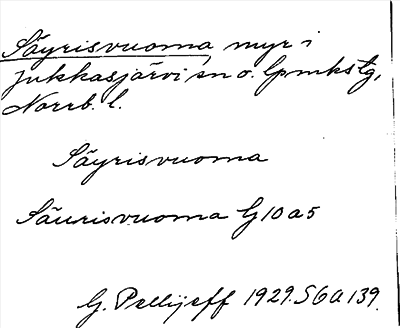 Säyrisvuoma, myr i
Jukkasjärvi sn o. lpmkstg,
Norrb. l.
Säyrisvuoma
Säurisvuoma G10a5
G. Pellijeff 1929. S6a139.